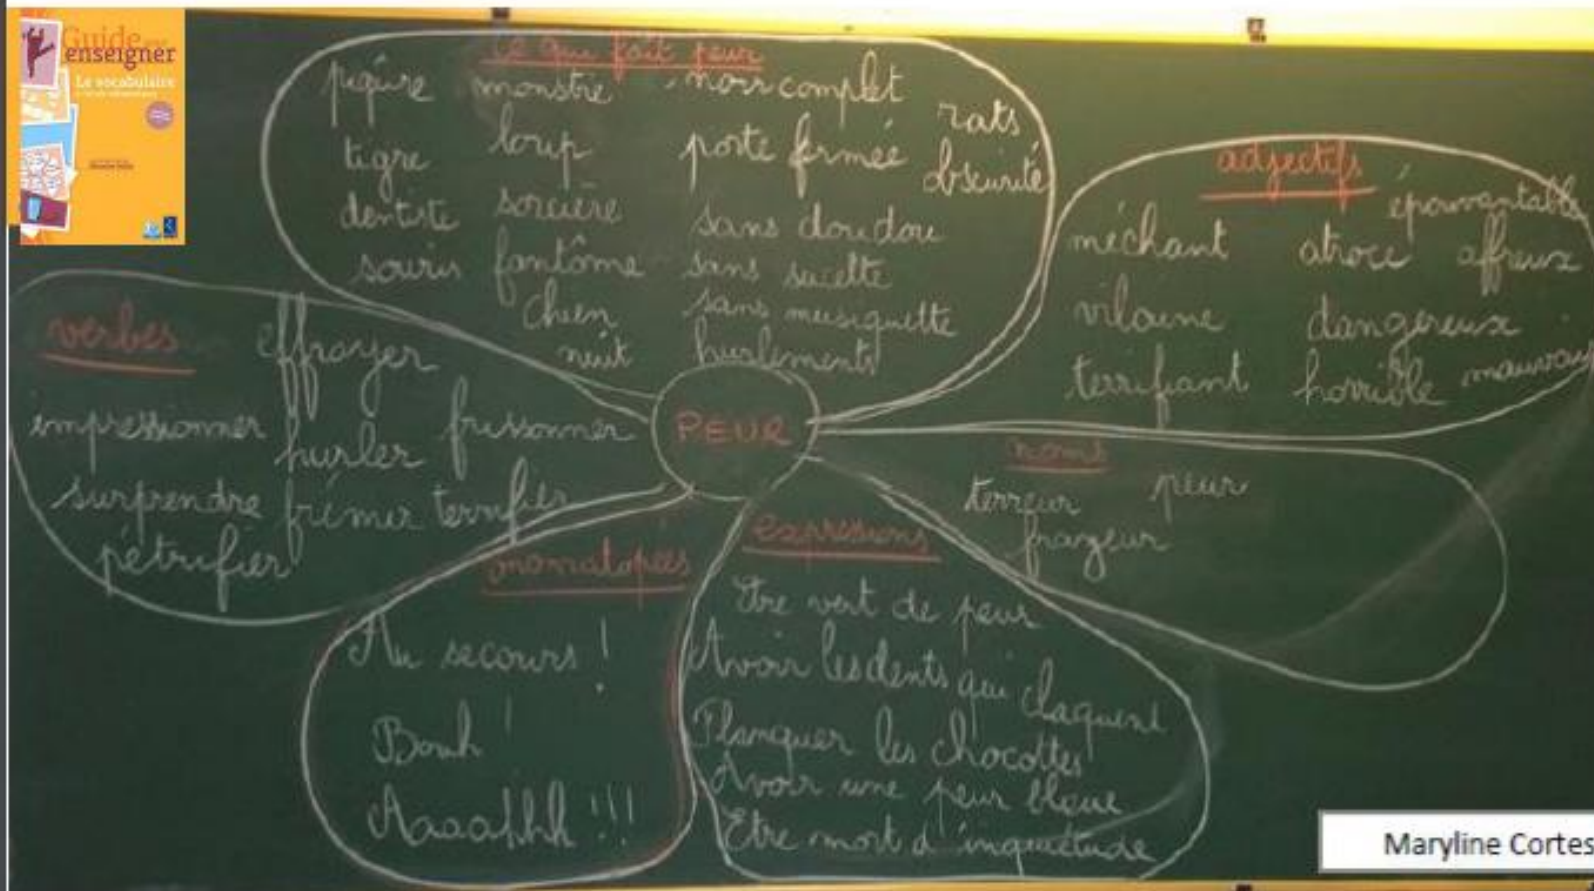 Guide pour
enseigner
Le vocabulaire
ce qui fait peur
piqûre monstre noir complet rats
tigre loup porte fermée obscurité
dentiste sorcière sans doudou
souris fantôme sans sucette
chien sans musiquette
nuit hurlements
adjectifs
épouvantable
méchant atroce affreux
vilaine dangereux
terrifiant horrible mauvais
verbes effrayer
impressionner hurler frissonner
surprendre frémir terrifier
pétrifier
PEUR
noms
terreur peur
frayeur
onomatopées
Au secours !
Bouh !
Aaaahhh !!!
expressions
Etre vert de peur
Avoir les dents qui claquent
Flanquer les chocottes
Avoir une peur bleue
Etre mort d'inquiétude
Maryline Cortes